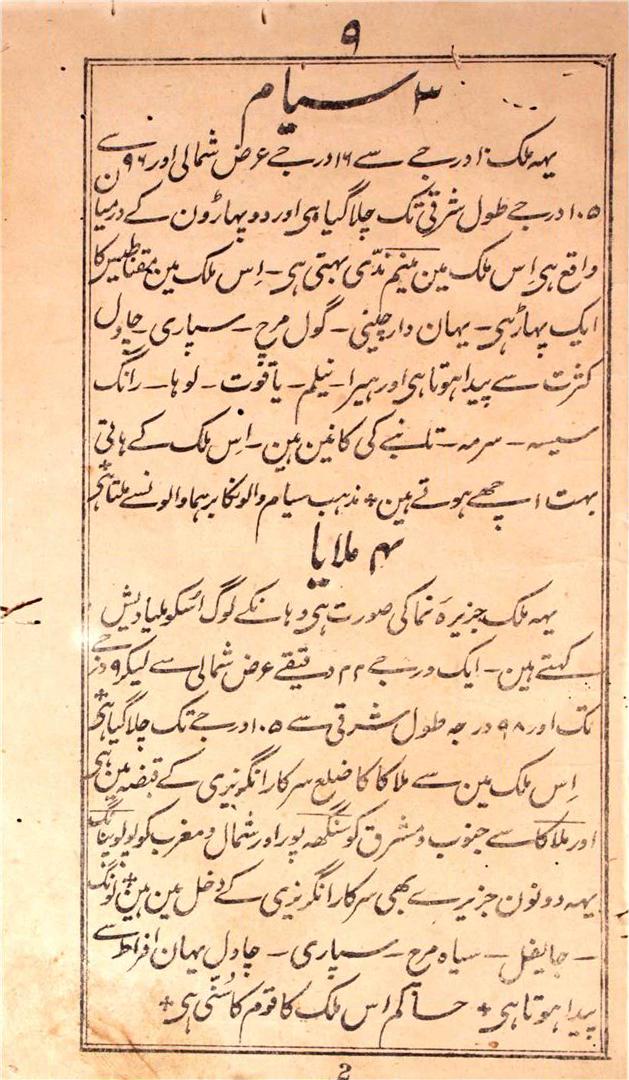 ۹
۳ سیام
یہہ ملک ۱۰ درجے سے ۱۶ درجے عرض شمالی اور ۹۶ سے
۱۰۵ درجے طول شرقی تک چلا گیا ہی اور دو پہاڑون کے درمیان
واقع ہی اِس ملک مین مینم ندّی بہتی ہی ـ اِس ملک مین مقناطیس کا
ایک پہاڑ ہی ـ یہان دارچینی ـ گول مرچ ـ سپاری ـ چاول
کثرت سے پیدا ہوتا ہی اور ہیرا ـ نیلم ـ یاقوت ـ لوہا ـ رانگ
سیسہ ـ سرمہ ـ تانبے کی کانین ہین ـ اِس ملک کے ہاتی
بہت اچھے ہوتے ہین + مذہب سیام والونکا برہما والونسے ملتا ہی +
۴ ملایا
یہہ ملک جزیرہ نما کی صورت ہی وہانکے لوگ اسکو ملیادیش
کہتے ہین ـ ایک درجے ۲۲ دقیقے عرض شمالی سے لیکر ۹ درجے
تک اور ۹۸ درجہ طول شرقی سے ۱۰۵ درجے تک چلا گیا ہی +
اِس ملک مین سے ملاکا کا ضلع سرکار انگریزی کے قبضہ مین ہی
اور ملاکا سے جنوب و مشرق کو سنگھہ پور اور شمال و مغرب کو پولوپینانگ
یہہ دونون جزیرے بھی سرکار انگریزی کے دخل مین ہین + لونگ
ـ جایفل ـ سیاہ مرچ ـ سپاری ـ چاول یہان افراط سے
پیدا ہوتا ہی + حاکم اس ملک کا قوم کا سُنّی ہی +
2